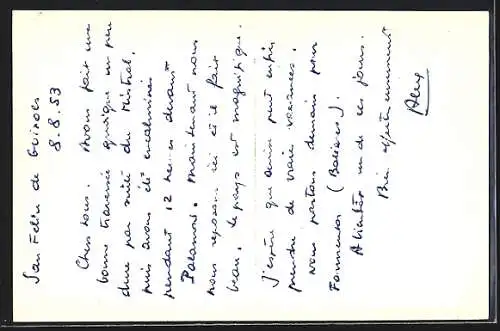 San Feliu de Guixols
8.8.53
Chers tous. Avons fait une
bonne traversée quoique un peu
dure par suite du Mistral.
puis avons été encalminés
pendant 12 heures devant
Palamos. Maintenant nous
nous reposons ici et il fait
beau. Le pays est magnifique.
J'espère que aussi peut
prendre de vraies vacances.
Nous partons demain pour
Formentor (Baléares).
A bientôt un de ces jours.
Bien affectueusement